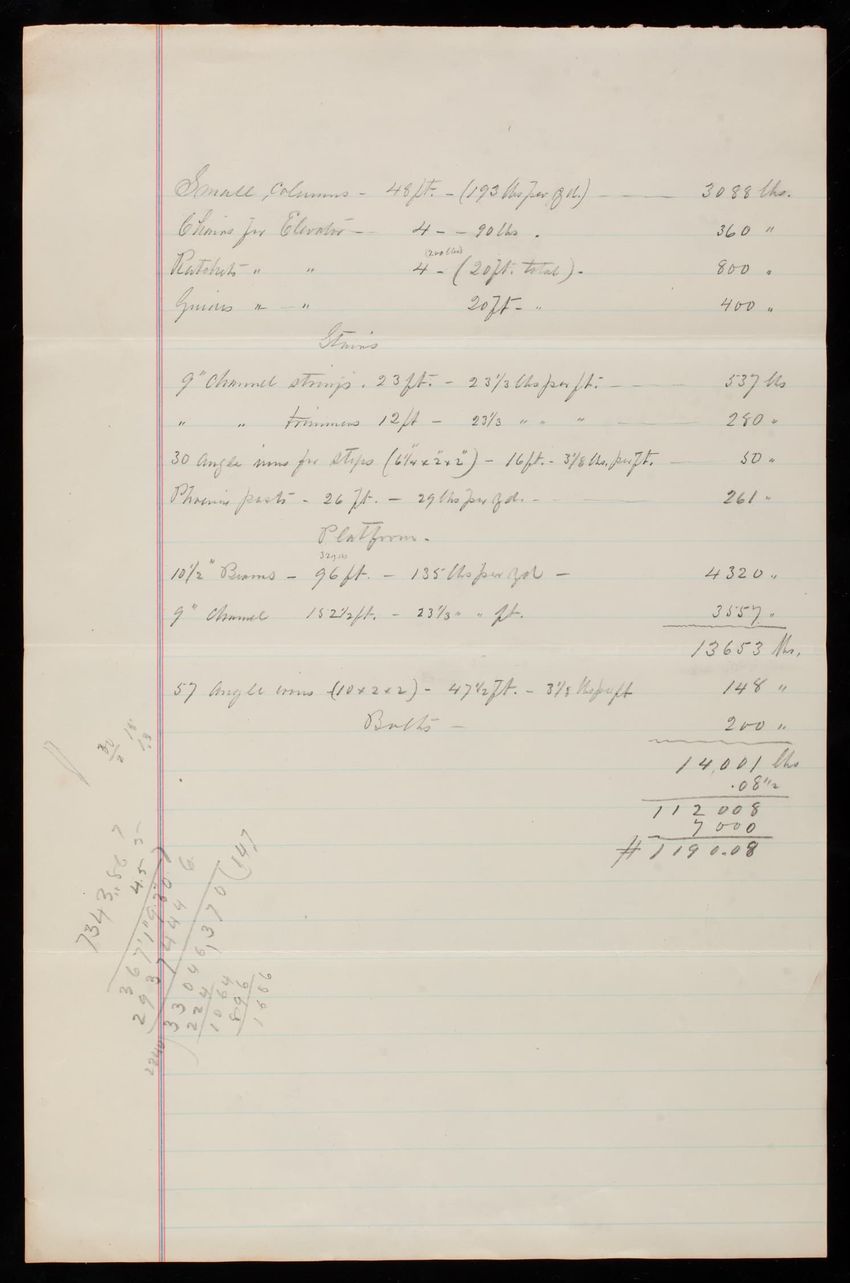 Small columns - 48 ft. - (193 lbs per yd.) 3088 lbs.
Chains for Elevator - 4 - - 90 lbs. 360 "
(200 lbs)
Ratchets " " 4 - (20 ft. total) - 800 "
" - " 20 ft - " 400 "
Stairs
9" channel strings. 23 ft. - 23 1/3 lbs per ft. - 537 lbs
" " trimmers 12 ft - 23 1/3 " " " 280 "
30 angle irons for steps (6 1/4 x 2" x 2") - 16 ft. - 3 1/8 lbs. per ft. 50 "
Phoenix posts - 26 ft. - 29 lbs per yd. - 261 "
Platform -
10 1/2" Beams - 96 ft. - 135 lbs per yd - 4320 "
9" channel 152 1/2 ft. - 23 1/3 " " ft. 3557 "
13653 lbs.
57 angle irons (10 x 2 x 2) - 47 1/2 ft. - 3 1/8 lbs per ft 148 "
Bolts - 200 "
14,001 lbs
.08 1/2
112 008
7 000
1190.08
2240
33046
1370
(147
224
1064
896